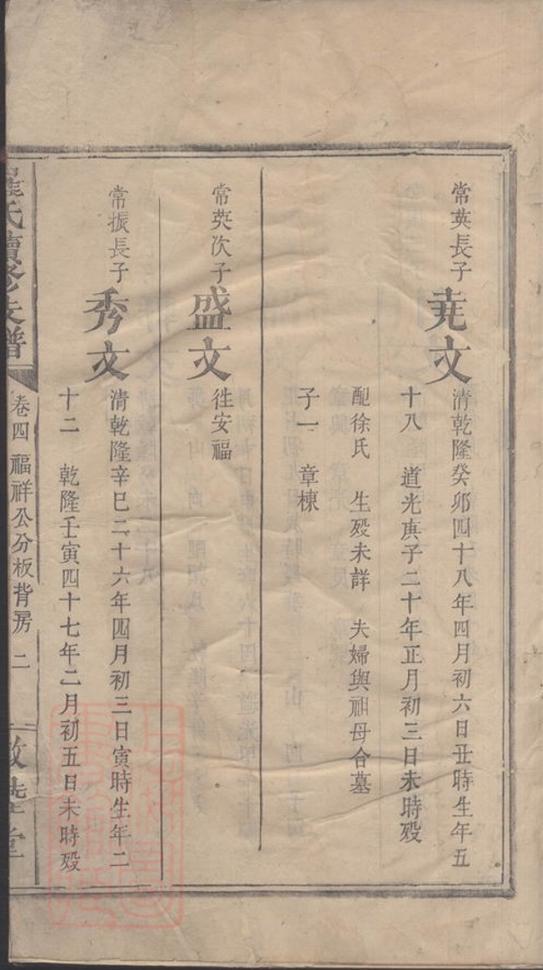 常英長子
堯文
清乾隆癸卯四十八年四月初六日丑時生年五
十八 道光庚子二十年正月初三日未時殁
配徐氏 生殁未詳 夫婦與祖母合墓
子一 章棟
常英次子
盛文
徃安福
常振長子
秀文
清乾隆辛巳二十六年四月初三日寅時生年二
十二 乾隆壬寅四十七年二月初五日未時殁
氏續修支譜
卷四 福祥公分板背房 二
堂